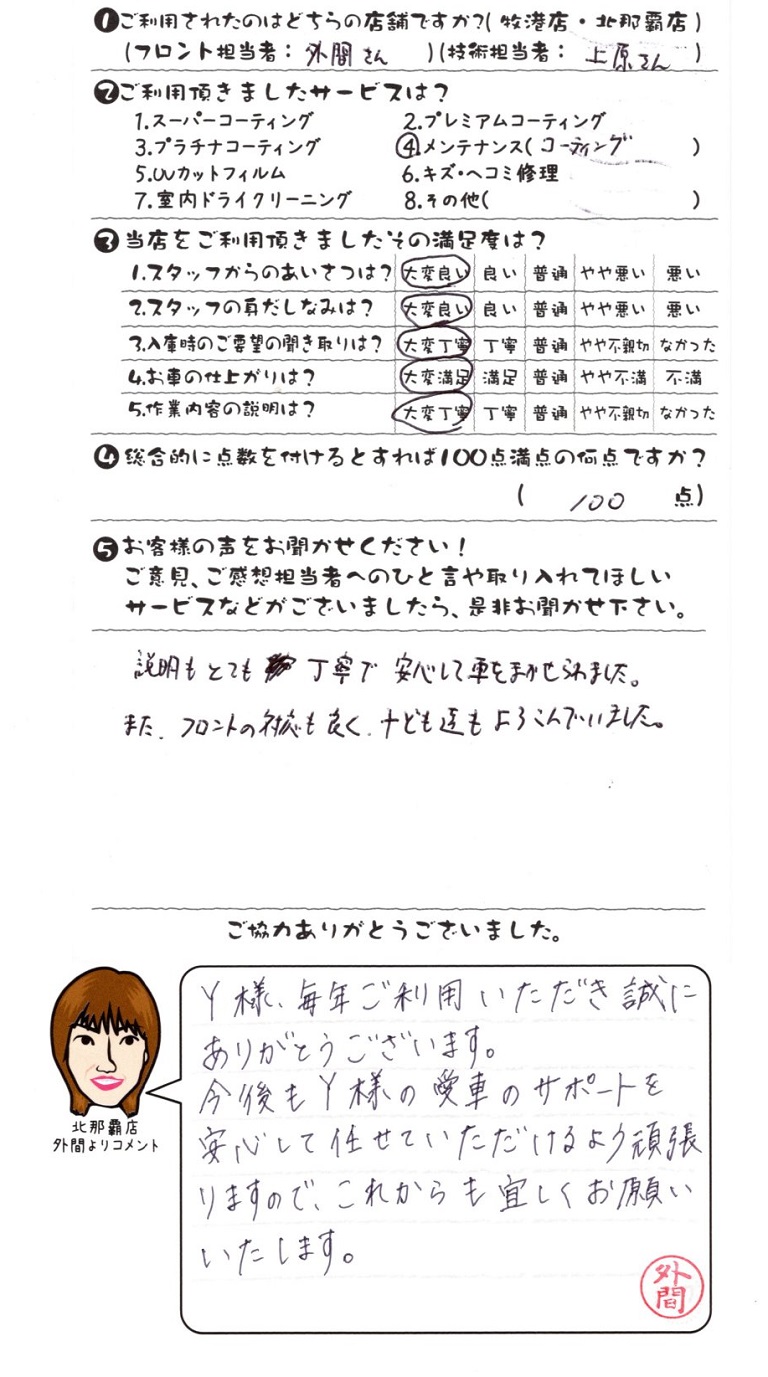 ❶ご利用されたのはどちらの店舗ですか?(牧港店・北那覇店)
(フロント担当者: 外間さん )(技術担当者: 上原さん )
❷ご利用頂きましたサービスは?
1.スーパーコーティング 2.プレミアムコーティング
3.プラチナコーティング ④.メンテナンス(コーティング )
5.UVカットフィルム 6.キズ・ヘコミ修理
7.室内ドライクリーニング 8.その他( )
❸当店をご利用頂きましたその満足度は?
1.スタッフからのあいさつは? 大変良い 良い 普通 やや悪い 悪い
2.スタッフの身だしなみは? 大変良い 良い 普通 やや悪い 悪い
3.入庫時のご要望の聞き取りは? 大変丁寧 丁寧 普通 やや不親切 なかった
4.お車の仕上がりは? 大変満足 満足 普通 やや不満 不満
5.作業内容の説明は? 大変丁寧 丁寧 普通 やや不親切 なかった
❹総合的に点数を付けるとすれば100点満点の何点ですか?
( 100 点)
❺お客様の声をお聞かせください!
ご意見、ご感想担当者へのひと言や取り入れてほしい
サービスなどがございましたら、是非お聞かせ下さい。
説明もとても丁寧で安心して車をまかせられました。
また、フロントの対応も良く、子ども達もよろこんでいました。
ご協力ありがとうございました。
Y様、毎年ご利用いただき誠に
ありがとうございます。
今後もY様の愛車のサポートを
安心して任せていただけるよう頑張
りますので、これからも宜しくお願い
いたします。
北那覇店
外間よりコメント
外間